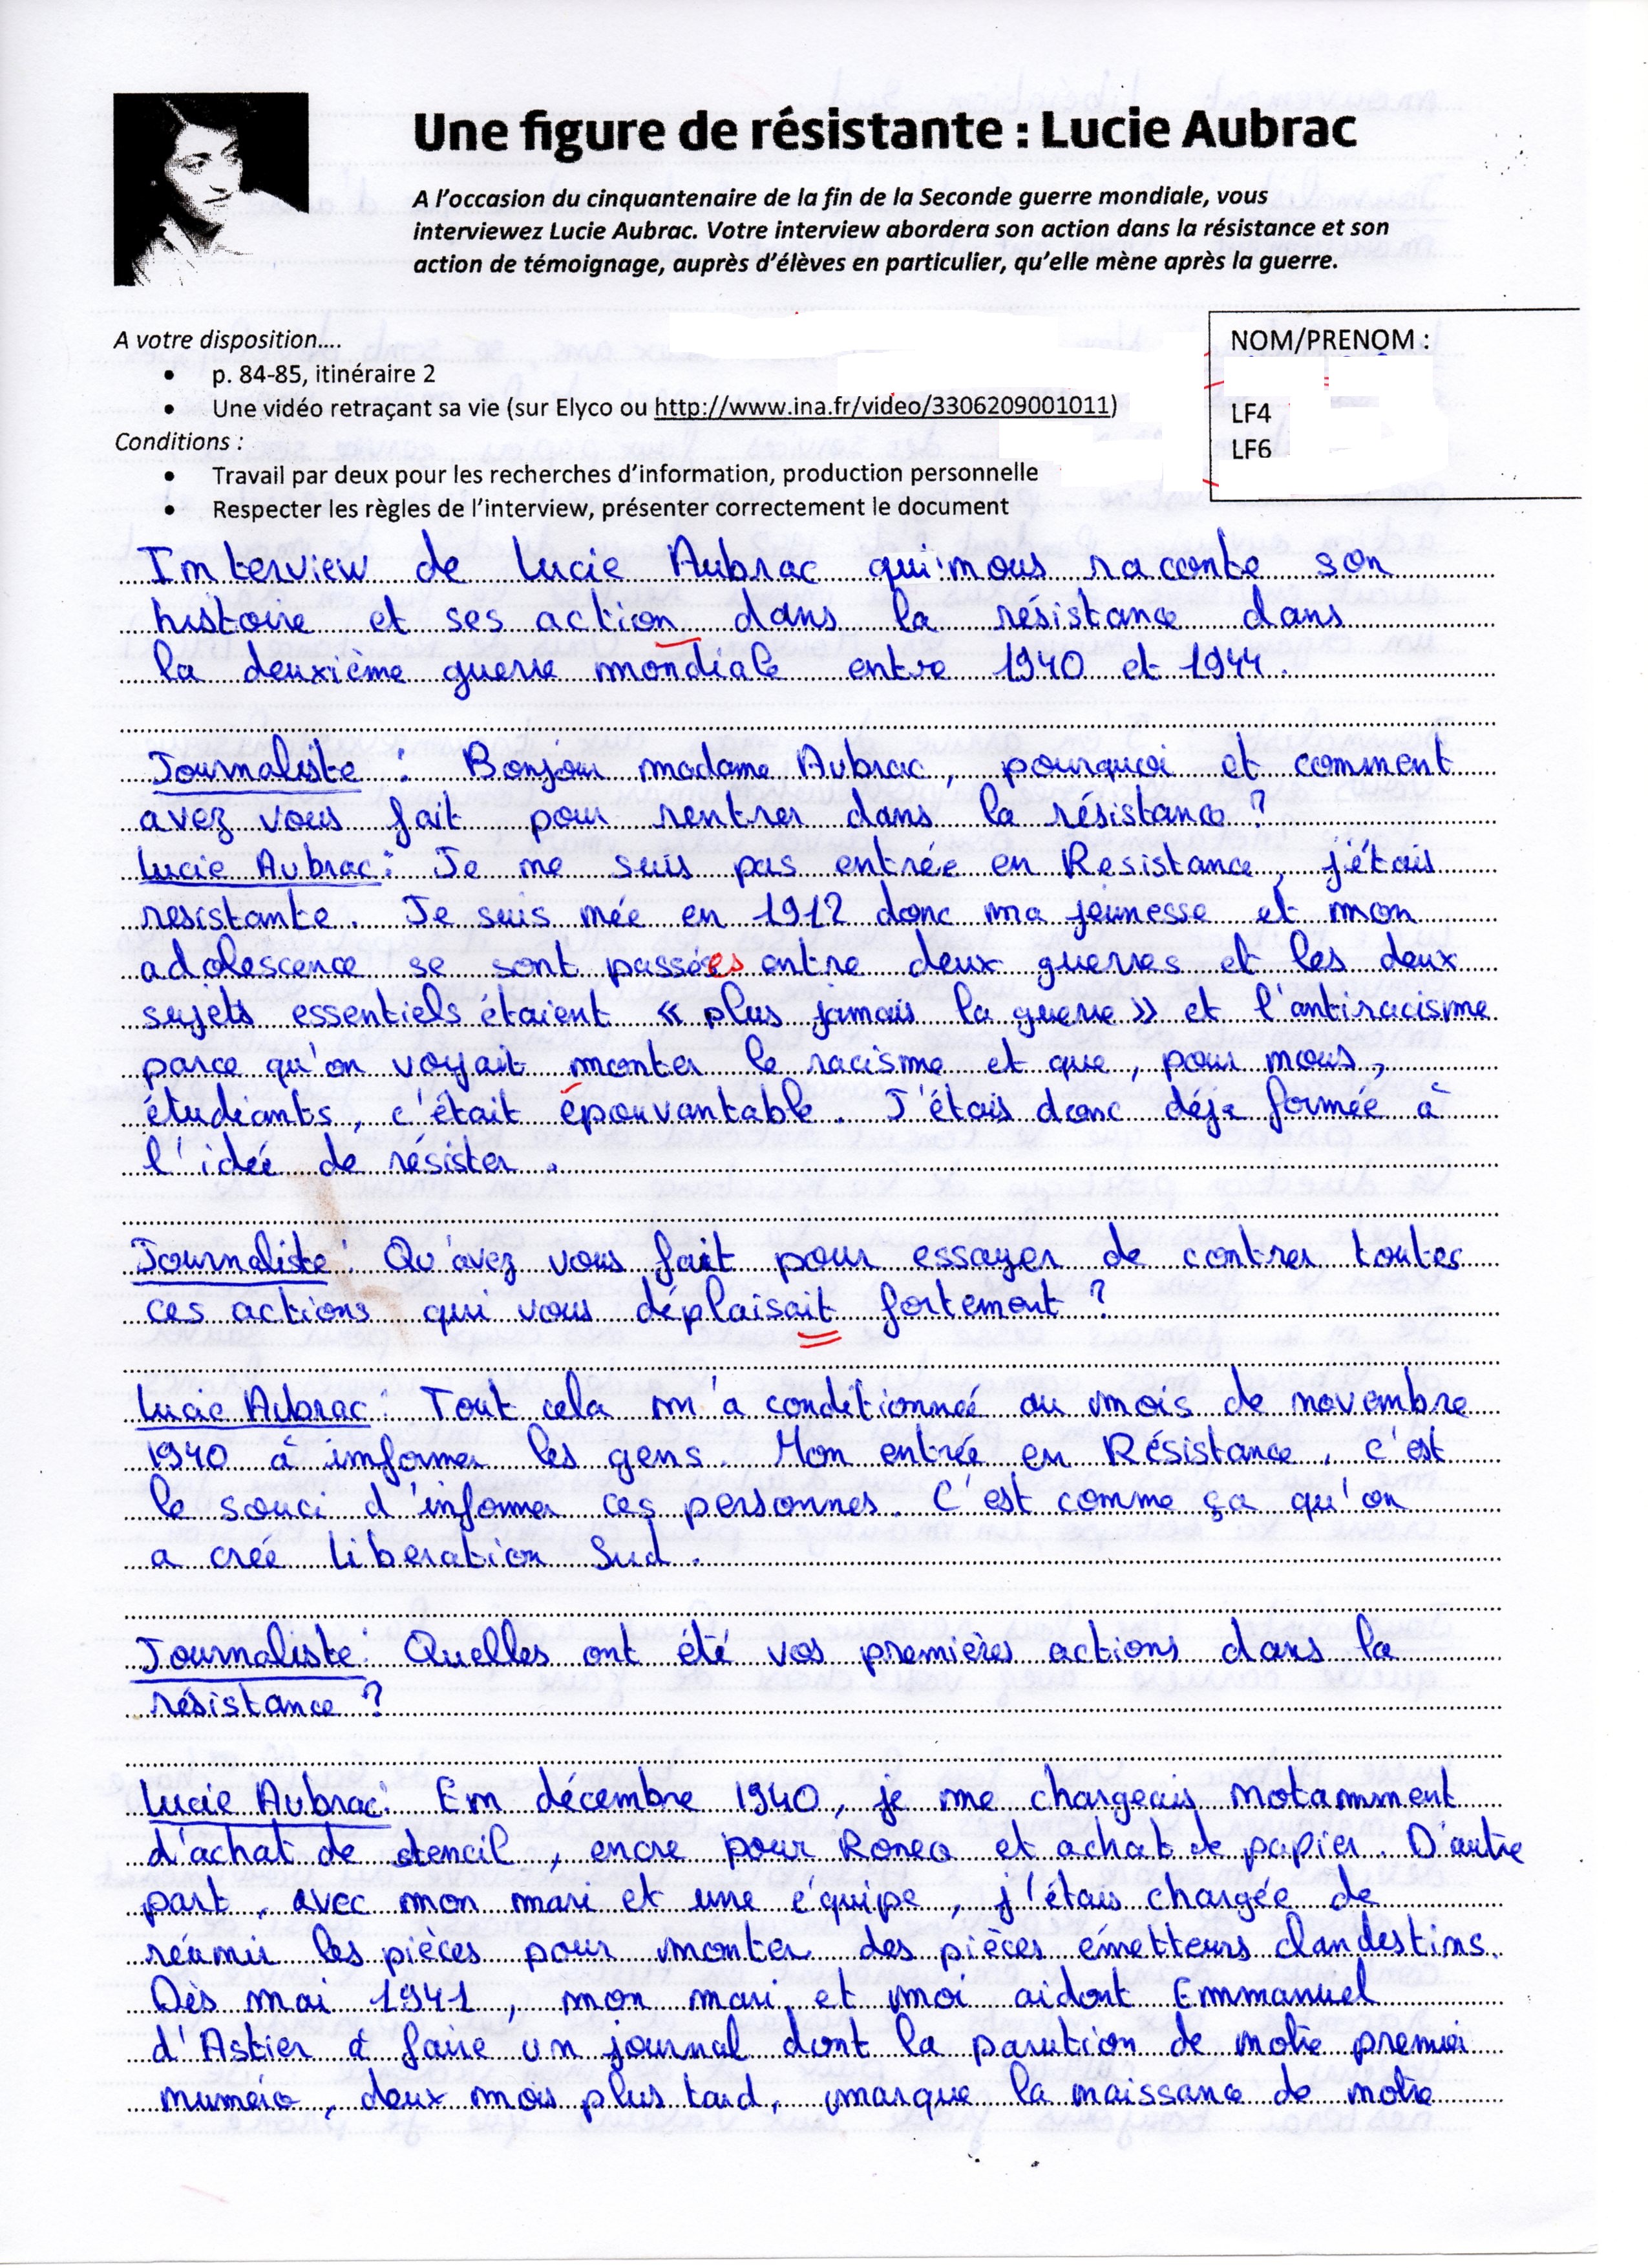 Une figure de résistante : Lucie Aubrac
A l'occasion du cinquantenaire de la fin de la Seconde guerre mondiale, vous
interviewez Lucie Aubrac. Votre interview abordera son action dans la résistance et son
action de témoignage, auprès d'élèves en particulier, qu'elle mène après la guerre.
A votre disposition....
• p. 84-85, itinéraire 2
• Une vidéo retraçant sa vie (sur Elyco ou http://www.ina.fr/video/3306209001011)
Conditions :
• Travail par deux pour les recherches d'information, production personnelle
• Respecter les règles de l'interview, présenter correctement le document
NOM/PRENOM :
LF4
LF6
Interview de Lucie Aubrac qui nous raconte son
histoire et ses action dans la résistance dans
la deuxième guerre mondiale entre 1940 et 1944.
Journaliste : Bonjour madame Aubrac, pourquoi et comment
avez vous fait pour rentrer dans la résistance ?
Lucie Aubrac : Je ne suis pas entrée en Resistance, j'étais
resistante. Je suis née en 1912 donc ma jeunesse et mon
adolescence se sont passées entre deux guerres et les deux
sujets essentiels étaient « plus jamais la guerre » et l'antiracisme
parce qu'on voyait monter le racisme et que, pour nous,
étudiants, c'était épouvantable. J'étais donc déja formée à
l'idée de résister.
Journaliste : Qu'avez vous fait pour essayer de contrer toutes
ces actions qui vous déplaisait fortement ?
Lucie Aubrac : Tout cela m'a conditionnée au mois de novembre
1940 à informer les gens. Mon entrée en Résistance, c'est
le souci d'informer ces personnes. C'est comme ça qu'on
a créé Liberation Sud.
Journaliste : Quelles ont été vos premières actions dans la
résistance ?
Lucie Aubrac : En décembre 1940, je me chargeais notamment
d'achat de stencil, encre pour Roneo et achat de papier. D'autre
part, avec mon mari et une équipe, j'étais chargée de
réunir les pièces pour monter des pièces émetteurs clandestins.
Dès mai 1941, mon mari et moi aidont Emmanuel
d'Astier à faire un journal dont la parution de notre premier
numéro, deux mois plus tard, marque la naissance de notre